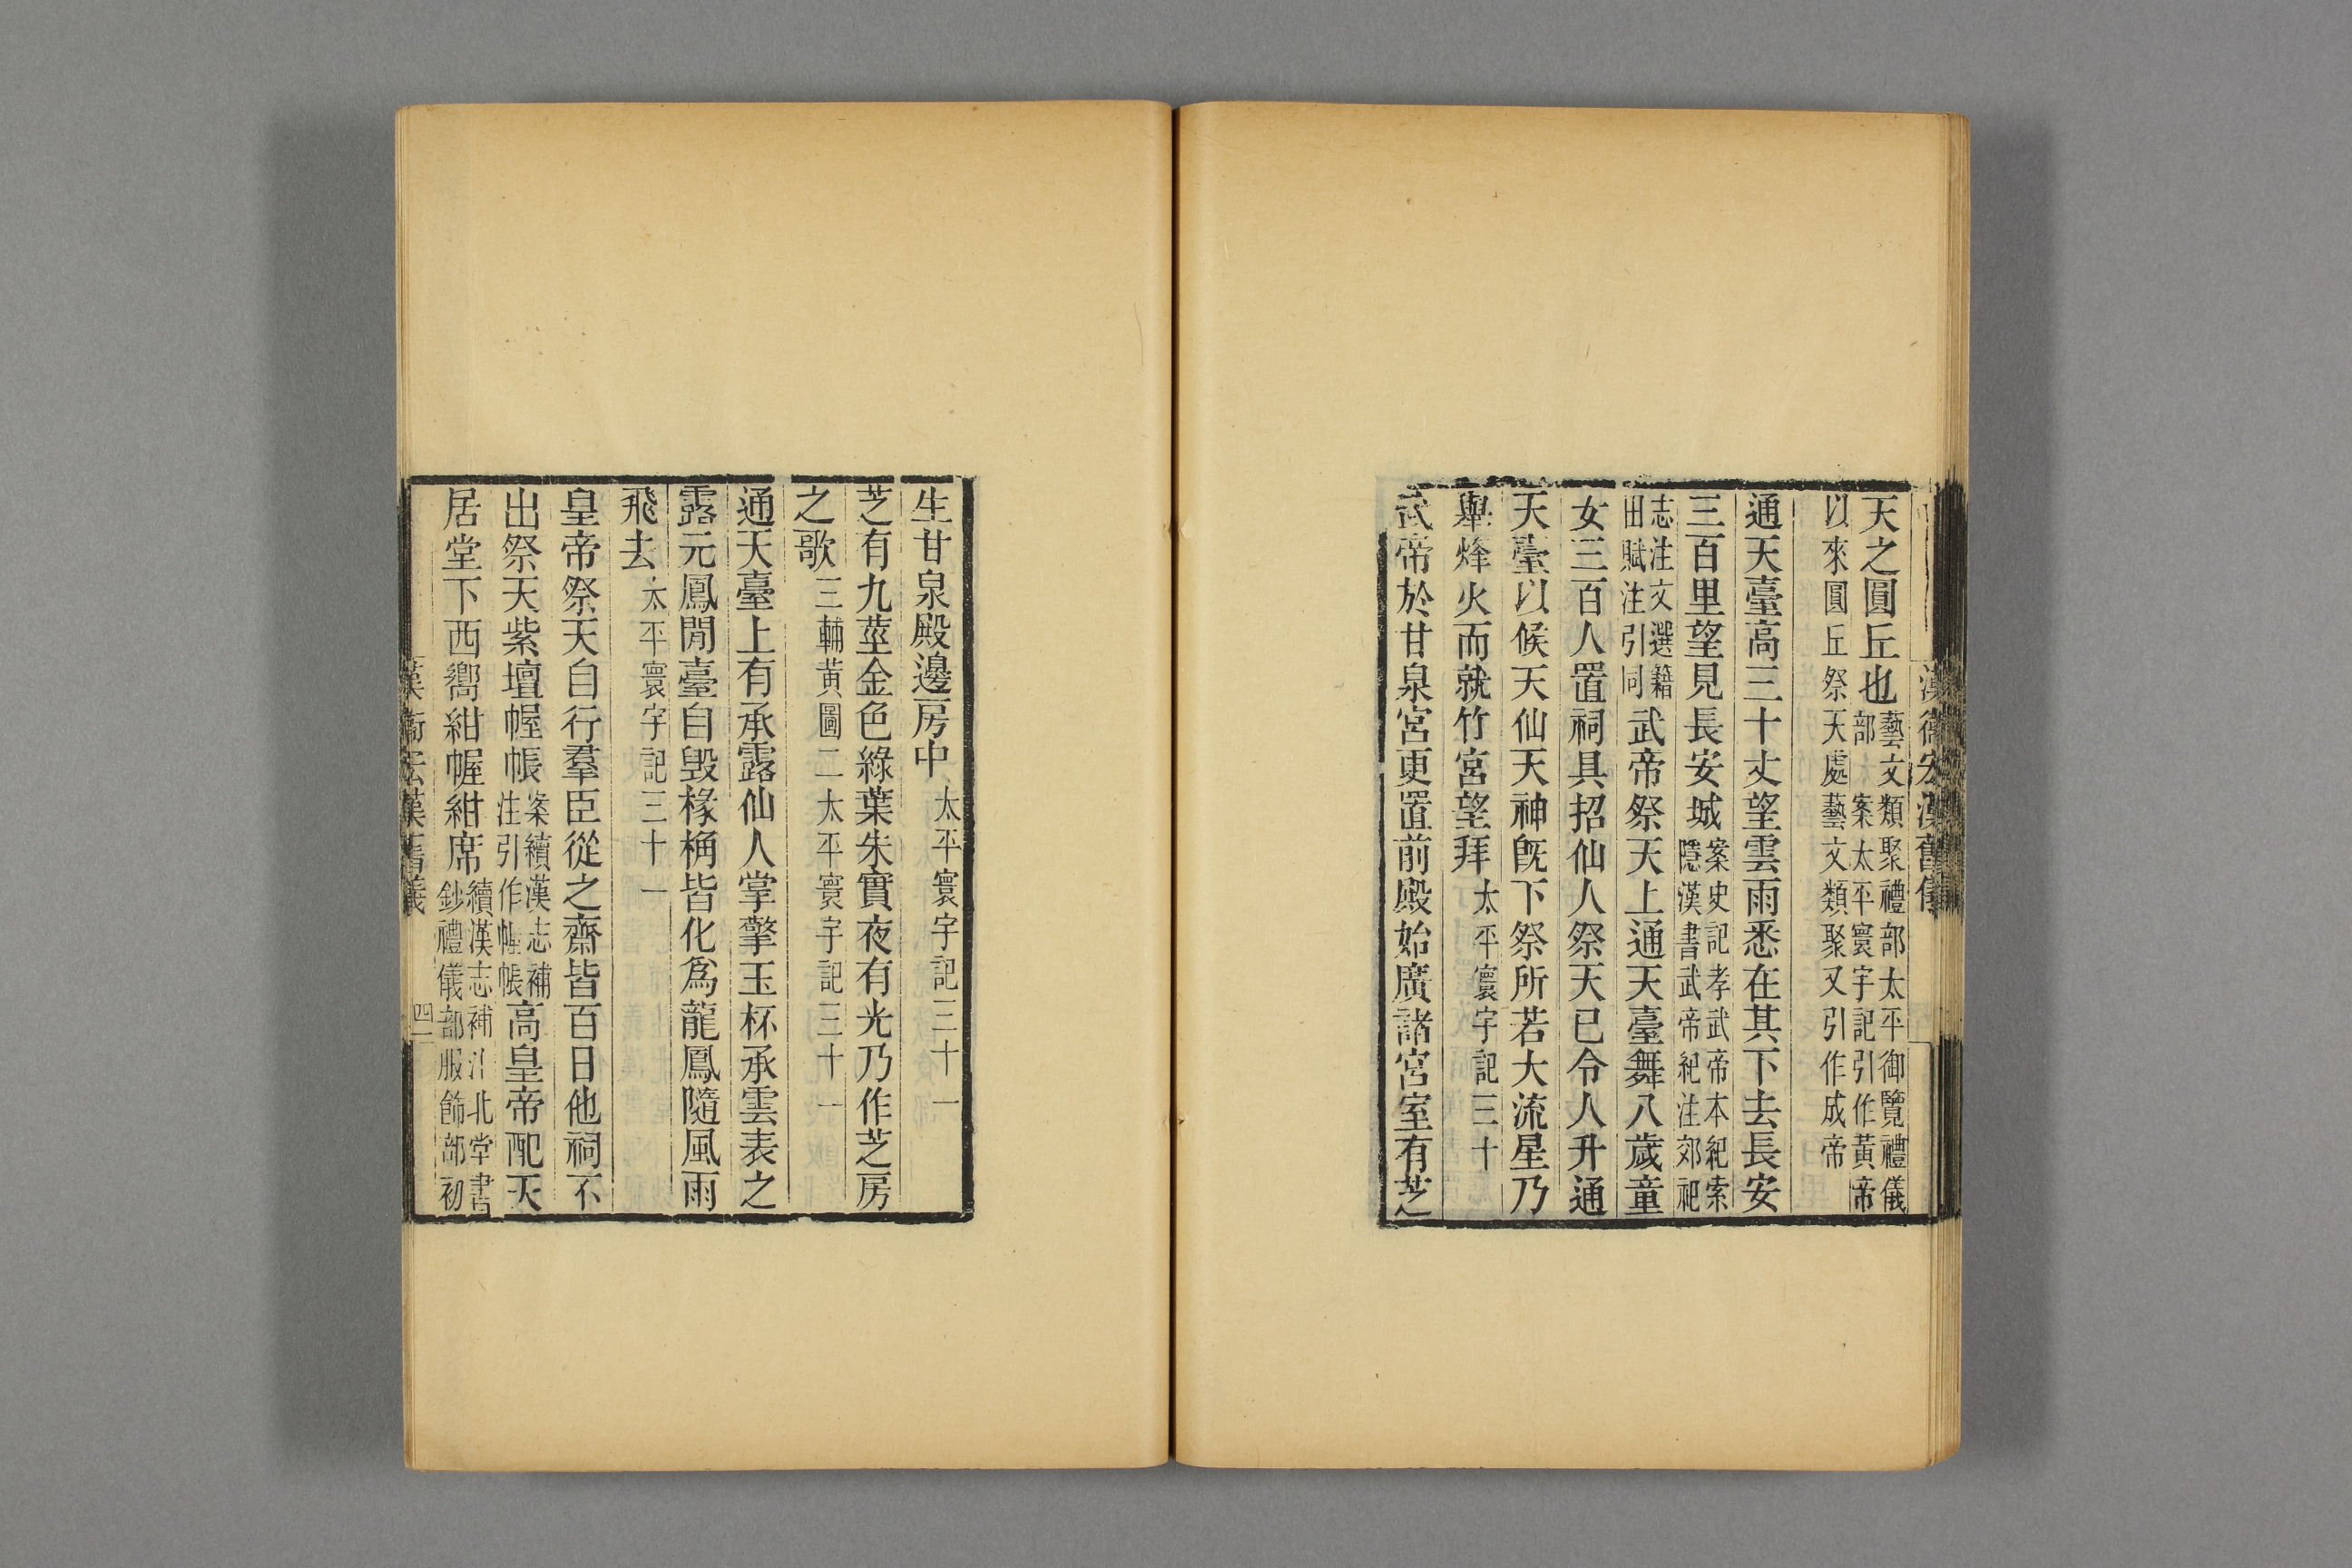 漢衛宏漢舊儀
天之圓丘也藝文類聚禮部太平御覽禮儀部案太平寰宇記引作黃帝
以來圓丘祭天處藝文類聚又引作成帝
通天臺高三十丈望雲雨悉在其下去長安
三百里望見長安城案史記孝武帝本紀索隱漢書武帝紀注郊祀
志注文選籍田賦注引同武帝祭天上通天臺舞八歲童
女三百人置祠具招仙人祭天已令人升通
天臺以候天仙天神旣下祭所若大流星乃
舉烽火而就竹宮望拜太平寰宇記三十
武帝於甘泉宮更置前殿始廣諸宮室有芝
生甘泉殿邊房中太平寰宇記三十一
芝有九莖金色綠葉朱實夜有光乃作芝房
之歌三輔黃圖二太平寰宇記三十一
通天臺上有承露仙人掌擎玉杯承雲表之
露元鳳閒臺自毀椽桷皆化爲龍鳳隨風雨
飛去太平寰宇記三十一
皇帝祭天自行羣臣從之齋皆百日他祠不
出祭天紫壇幄帳案續漢志補注引作幄帳高皇帝配天
居堂下西嚮紺幄紺席續漢志補注北堂書鈔禮儀部服飾部初
漢衛宏漢舊儀
四